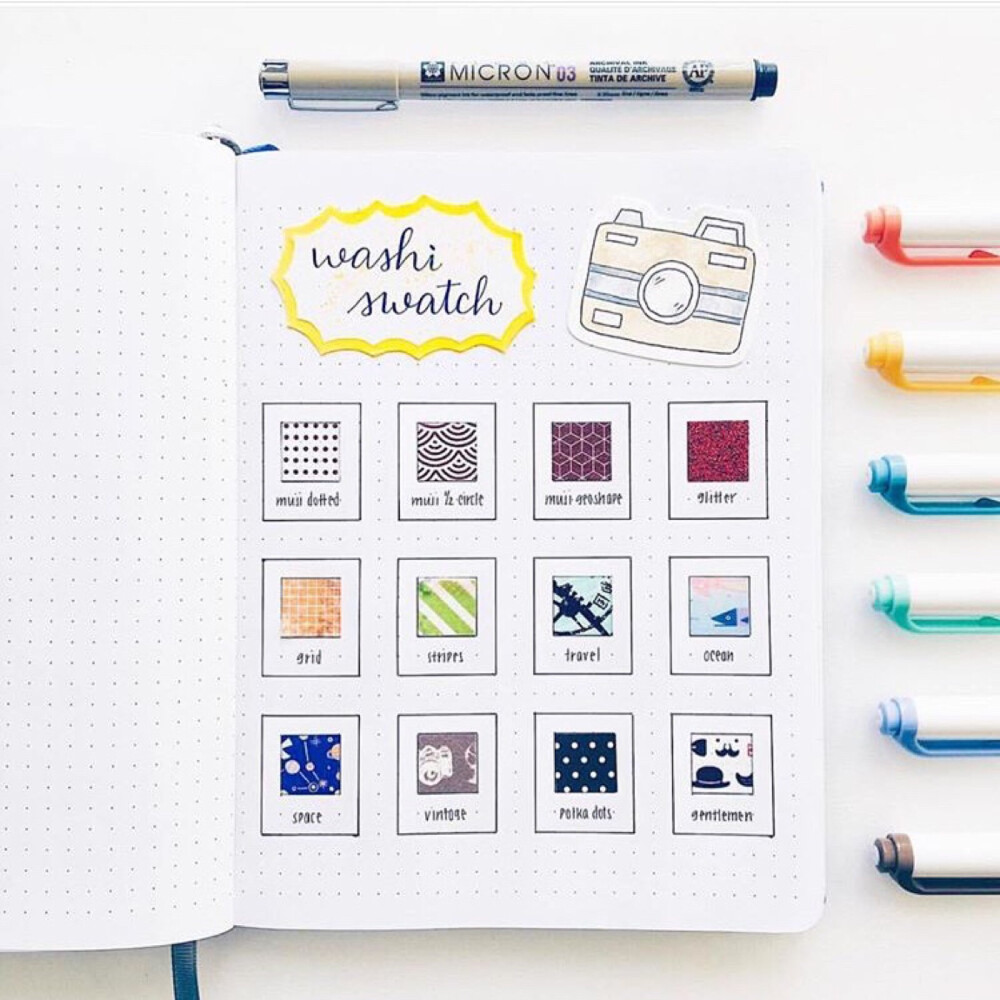 MICRON™ 03
ARCHIVAL INK
QUALITÉ D'ARCHIVAGE
TINTA DE ARCHIVE
AP
washi
swatch
muji dotted
muji ½ circle
muji geoshape
glitter
grid
stripes
travel
ocean
space
vintage
polka dots
gentlemen